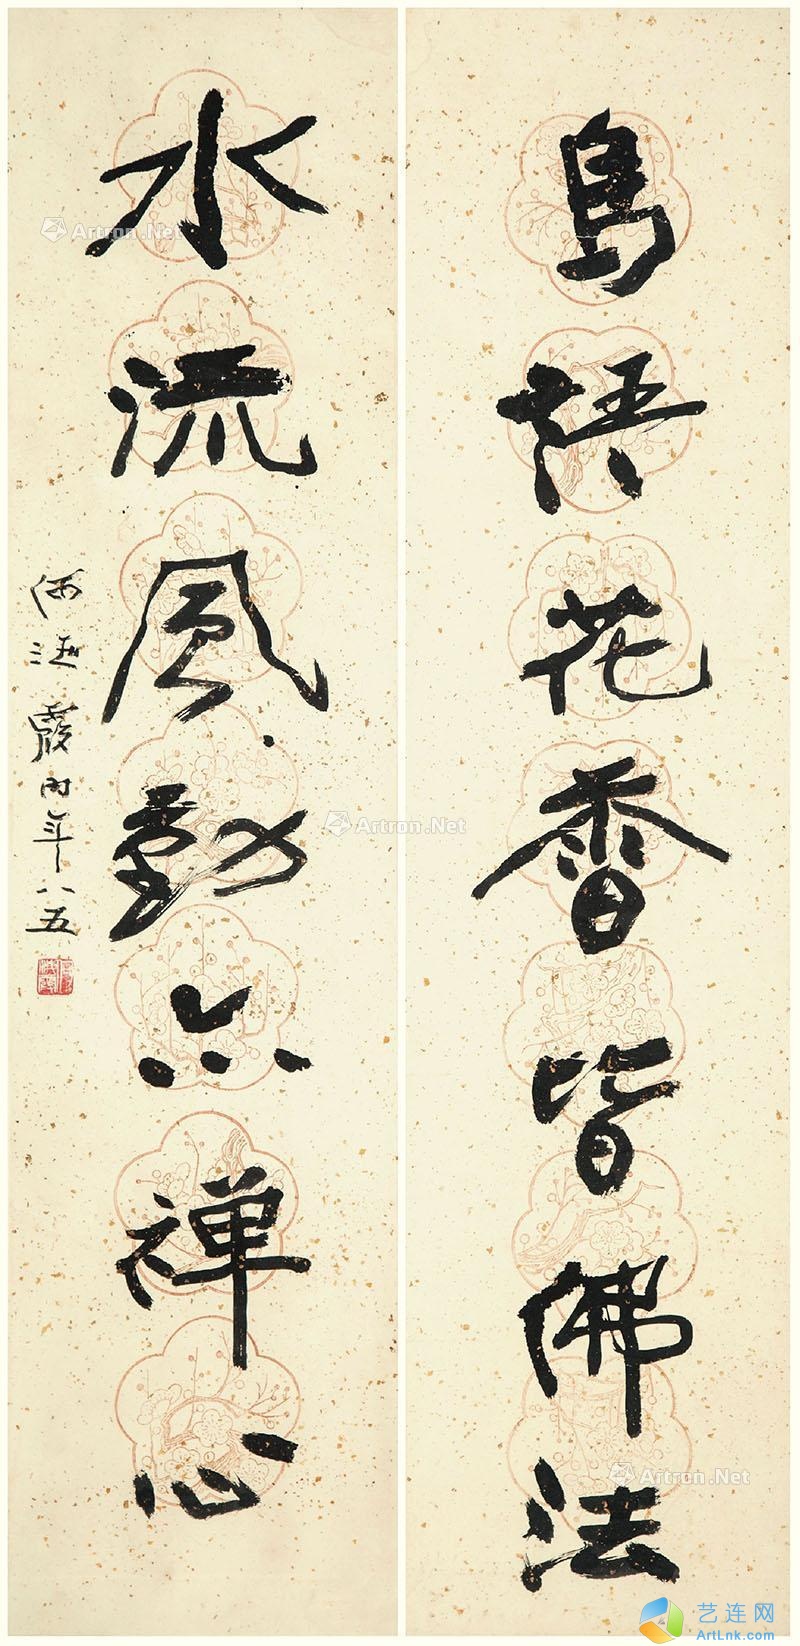 鳥語花香皆佛法
水流風動亦禅心
何海霞時年八五
Artron.Net
Artron.Net
Artron.Net
艺连网
ArtLnk.com